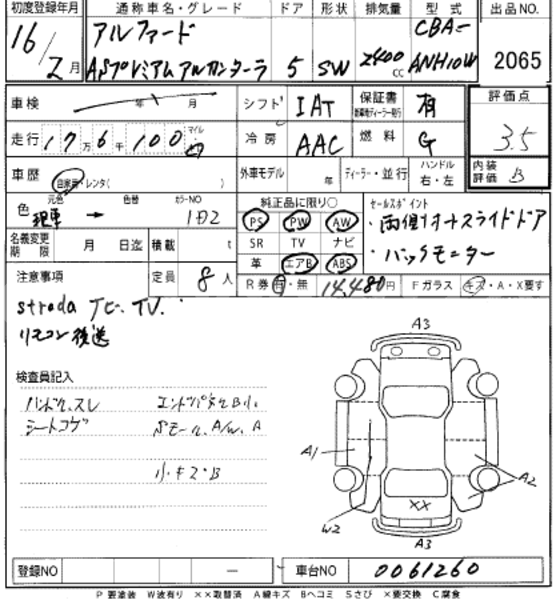 初度登録年月 通称車名・グレード ドア 形状 排気量 型式 出品NO
16/2月 アルファード ASプレミアムアルカンターラ 5 SW 2400cc CBA-ANH10W 2065
車検 年 月 シフト IAT 保証書 新車時ディーラー発行 有 評価点
走行 17万6千100 マイル 冷房 AAC 燃料 G 3.5
車歴 自家用・レンタ( ) 外車モデル 年 ディーラー・並行 ハンドル 右・左 内装評価 B
色 元色 色替 カラーNO 純正品に限り○ セールスポイント
→ 1D2 PS PW AW ・両側オートスライドドア
名義変更期限 月 日迄 積載 t SR TV ナビ ・バックモニター
革 エアB ABS
注意事項 定員 8人 R券 有・無 14,480円 Fガラス キズ・A・X要す
strada ナビ.TV.
リモコン後送
検査員記入
ハンドル.スレ
シートコゲ A/W.A
小キズ・B
A3
A1
A2
W2
XX
A3
登録NO ― 車台NO 0061260
P 要塗装 W波有り ××取替済 A線キズ Bヘコミ Sさび ×要交換 C腐食